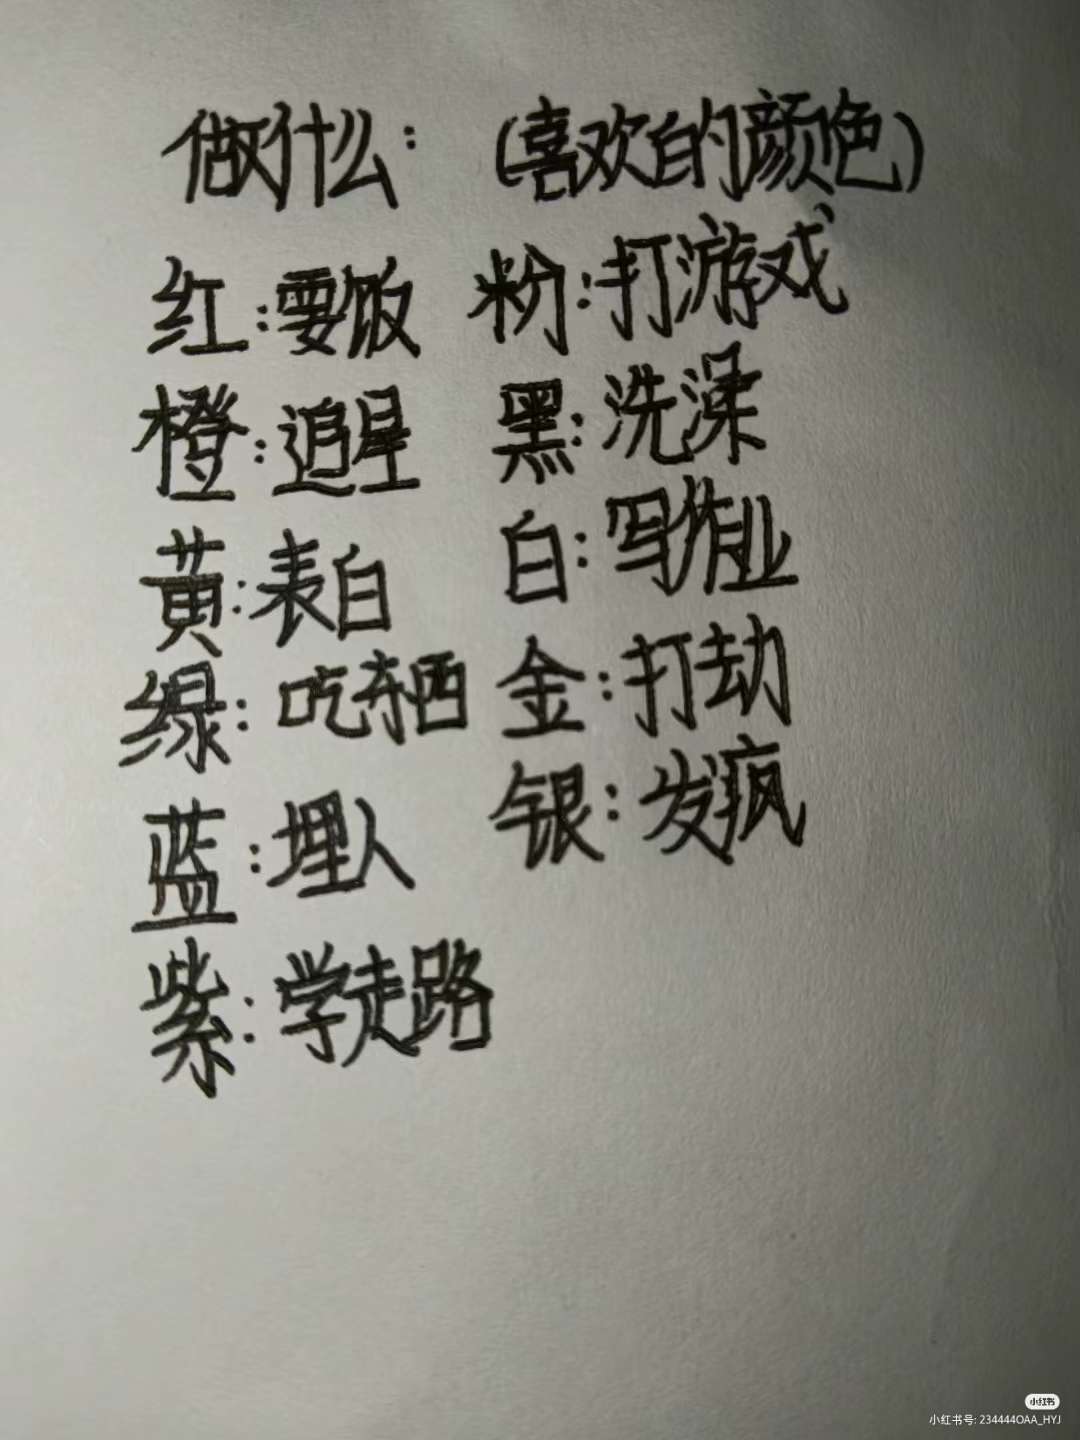 做什么：（喜欢的颜色）
红：要饭 粉：打游戏
橙：追星 黑：洗澡
黄：表白 白：写作业
绿：吃东西 金：打劫
蓝：埋人 银：发疯
紫：学走路
小红书
小红书号: 234444OAA_HYJ